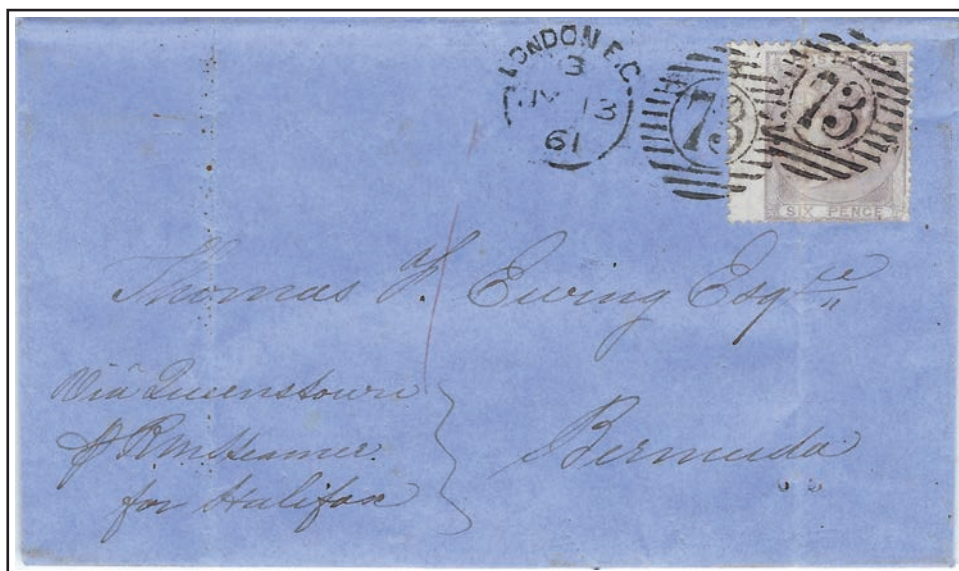 LONDON E.C
3
JY 13
61
73
73
POSTAGE
SIX PENCE
Thomas F. Ewing Esqre
Via Queenstown
p RM Steamer
for Halifax
Bermuda